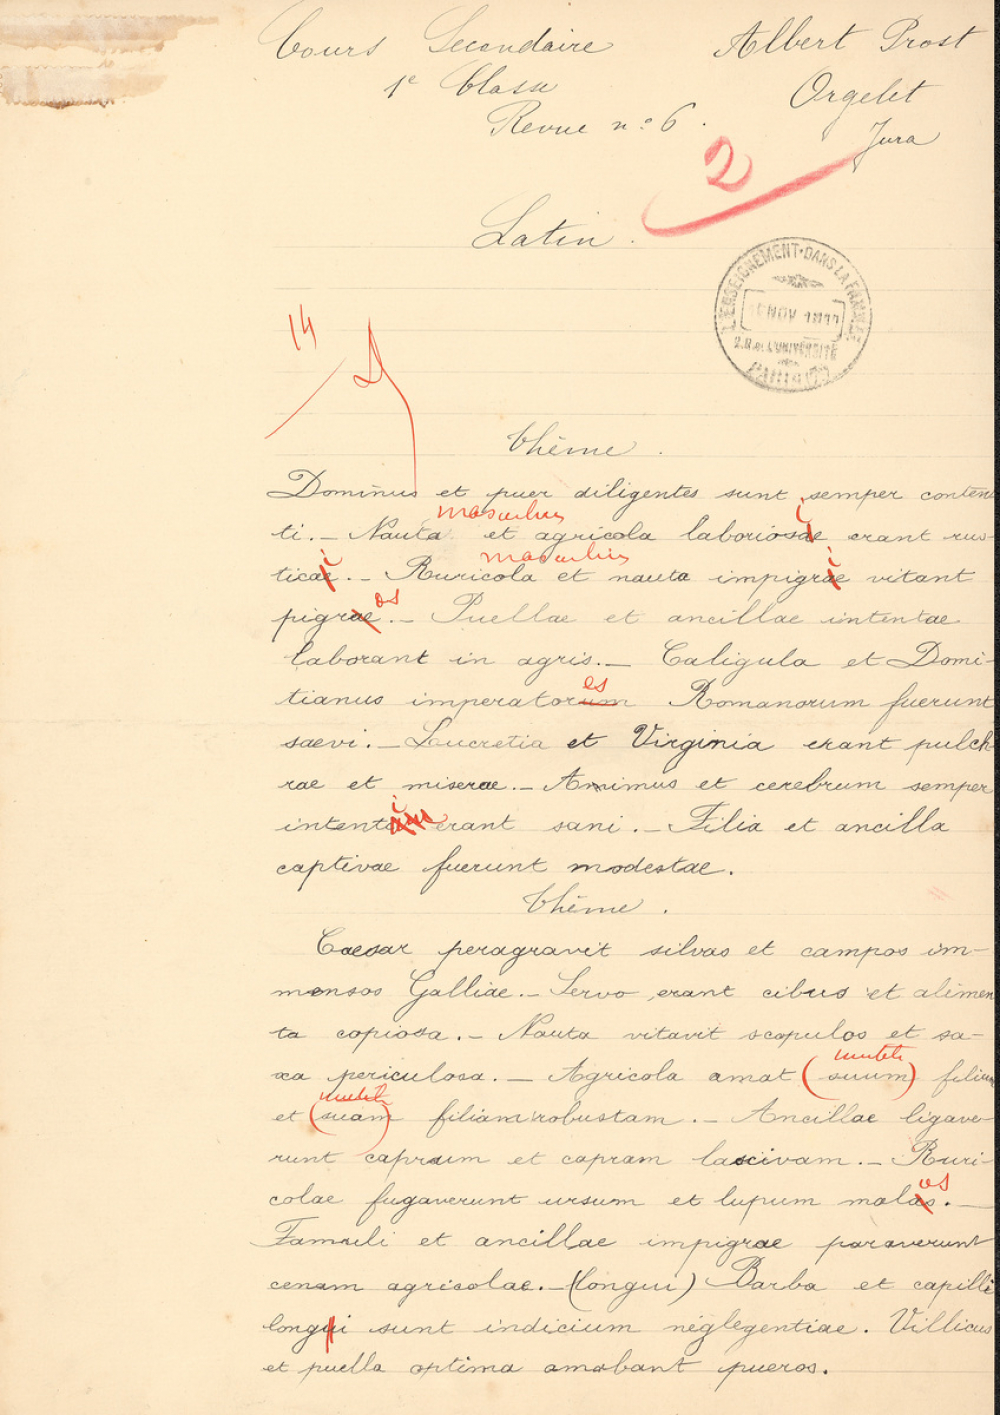 Cours Secondaire Albert Prost
1e Classe Orgelet
Revue n° 6. Jura
2
Latin.
L'ENSEIGNEMENT DANS LA FAMILLE
NOV
PARIS
14
Thème.
Dominus et puer diligentes sunt semper conten
masculin i
ti. — Nauta et agricola laboriosae erant rus-
i masculin i
ticae. — Ruricola et nauta impigrae vitant
os
pigrae. — Puellae et ancillae intentae
laborant in agris. — Caligula et Domi-
es
tianus imperatorum Romanorum fuerunt
saevi. — Lucretia et Virginia erant pulch-
rae et miserae. — Animus et cerebrum semper
i
intent erant sani. — Filia et ancilla
captivae fuerunt modestae.
Thème.
Caesar peragravit silvas et campos im-
mensos Galliae. — Servo erant cibus et alimen
ta copiosa. — Nauta vitavit scopulos et sa-
inutile
xa periculosa. — Agricola amat (suum) filium
inutile
et (suam) filiam robustam. — Ancillae ligave-
runt caprum et capram lascivam. — Ruri-
os
colae fugaverunt ursum et lupum malas. —
Famuli et ancillae impigrae paraverunt
cenam agricolae. — (longui) Barba et capilli
longui sunt indicium neglegentiae. Villicus
et puella optima amabant pueros.